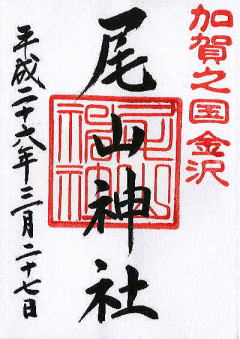 加賀之国金沢
尾山神社
平成二十六年三月二十七日